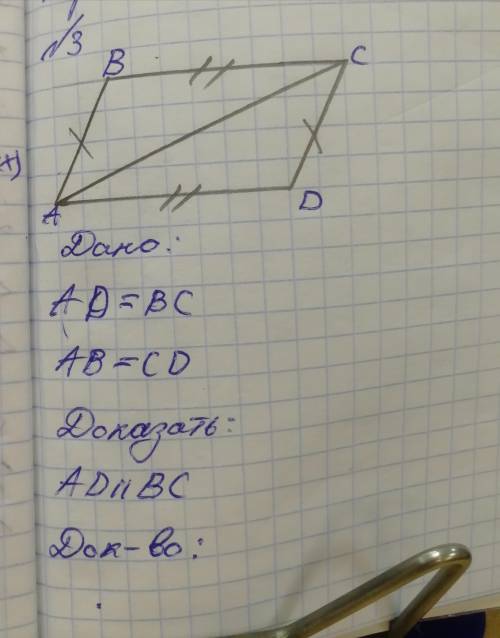 №3
B
C
A
D
Дано:
AD=BC
AB=CD
Доказать:
AD॥BC
Док-во: